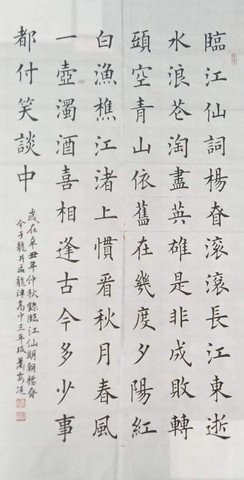 臨江仙詞楊眘滾滾長江東逝
水浪花淘盡英雄是非成敗轉
頭空青山依舊在幾度夕陽紅
白漁樵江渚上慣看秋月春風
一壺濁酒喜相逢古今多少事
都付笑談中
歲在辛丑年仲秋錄臨江仙明朝楊眘
今于龍井區龍津高中三年